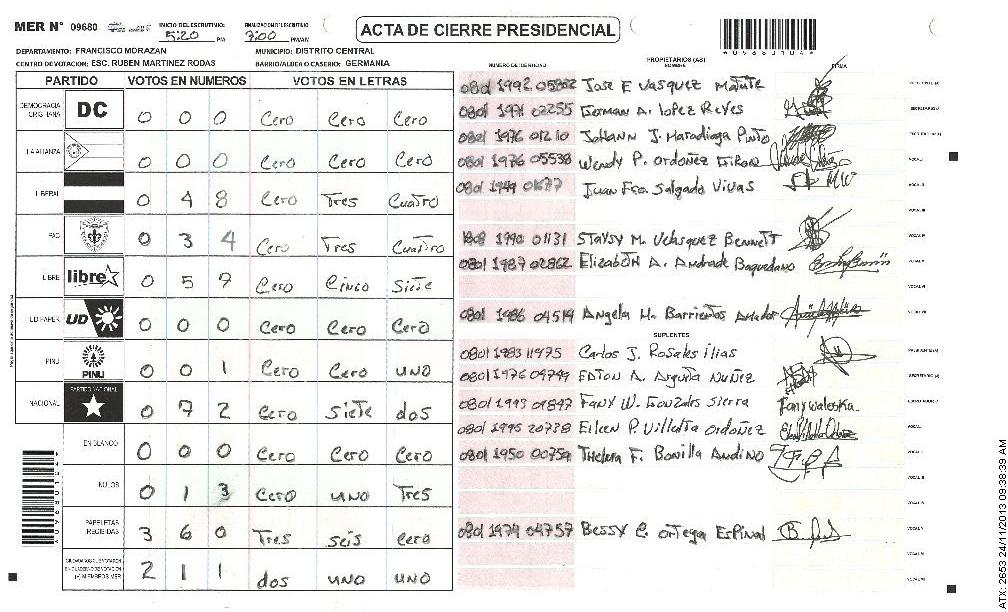 MER N° 09680 INICIO DEL ESCRUTINIO 5:20 PM FINALIZACION DE ESCRUTINIO 7:00 PM/AM
ACTA DE CIERRE PRESIDENCIAL
DEPARTAMENTO: FRANCISCO MORAZAN MUNICIPIO: DISTRITO CENTRAL
CENTRO DE VOTACION: ESC. RUBEN MARTINEZ RODAS BARRIO/ALDEA O CASERIO: GERMANIA
PARTIDO VOTOS EN NUMEROS VOTOS EN LETRAS
DEMOCRACIA CRISTIANA DC 0 0 0 Cero Cero Cero
LA ALIANZA 0 0 0 Cero Cero Cero
LIBERAL 0 4 8 Cero Tres Cuatro
PAC 0 3 4 Cero Tres Cuatro
LIBRE libre 0 5 7 Cero Cinco Siete
UD FAPER UD 0 0 0 Cero Cero Cero
PINU PINU 0 0 1 Cero Cero uno
NACIONAL PARTIDO NACIONAL 0 7 2 Cero Siete dos
EN BLANCO 0 0 0 Cero Cero Cero
NULOS 0 1 3 Cero uno Tres
PAPELETAS RECIBIDAS 3 6 0 Tres seis Cero
2 1 1 dos uno uno
NUMERO DE IDENTIDAD PROPIETARIOS (AS) NOMBRE FIRMA
0801 1992 Jose F Vasquez Matute
0801 02255 German A. Lopez Reyes
0801 1976 01210 Johann J. Maradiaga Pinto
0801 1976 05538 Wendy P. Ordoñez
0801 1949 01677 Juan Fco. Salgado Vivas
1990 01131 Staysy M. Velasquez Bennett
0801 1987 02862 Elizabeth A. Andrade Baquedano
0801 1986 04514 Angela M. Barrientos Amador
SUPLENTES
0801 1983 11975 Carlos J. Rosales ilias
0801 1976 09749 Edton A. Nuñez
0801 1993 01847 Fany W. Gonzales Sierra Fany waleska
0801 1995 20738 Eileen P. Villetta Ordoñez
0801 1950 00759 Thelma F. Bonilla Andino
0801 1974 04757 Bessy C. Ortega Espinal
ATX: 2653 24/11/2013 09:38:39 AM